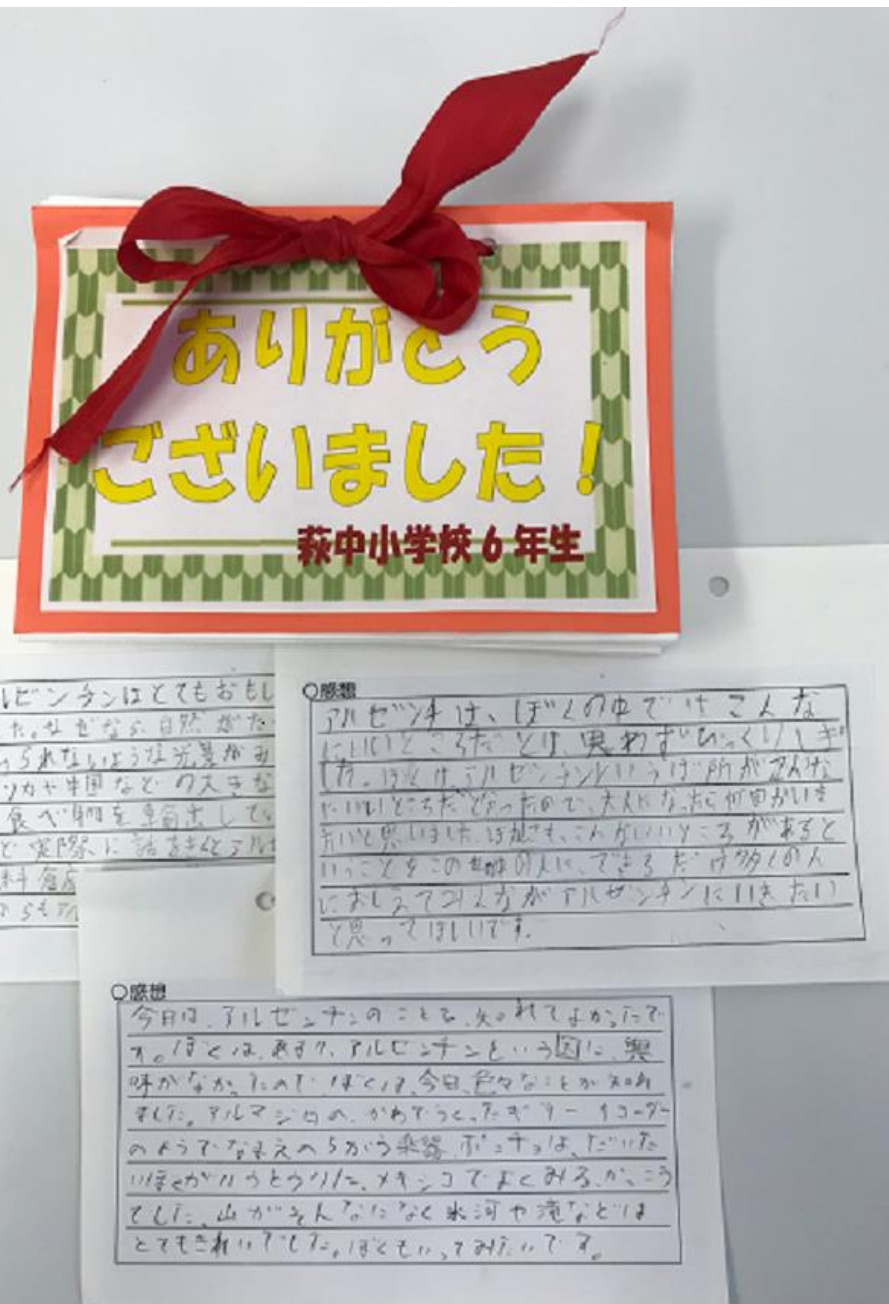 ありがとう
ございました!
萩中小学校6年生
ルゼンチンはとてもおもし
た。なぜなら自然がた
られないような光景がみ
リカや中国などの大きな
食べ物を輸出してい
ど実際に話をきくとアル
○感想
アルゼンチンは、ぼくの中ではこんな
にいいところだとは、思わずびっくりしま
した。ぼくは、アルゼンチンという場所がこんな
にいいところだと
たいと思いました。こんないいところがあると
いうことをこの できるだけ多くの人
におしえてみんながアルゼンチンにいきたい
と思ってほしいです。
○感想
今日は、アルゼンチンのことを、知れてよかったで
す。ぼくは、あまり、アルゼンチンという国に、興
味がなかったので、ぼくは、今日、色々なことが知れ
ました。アルマジロの、かわでつくったギター、リコーダー
のようでなまえのちがう楽器、ポンチョは、だいた
いぼくが メキシコでよくみる、かっこう
でした。山がそんなになく氷河や滝などは
とてもきれいでした。ぼくもいってみたいです。